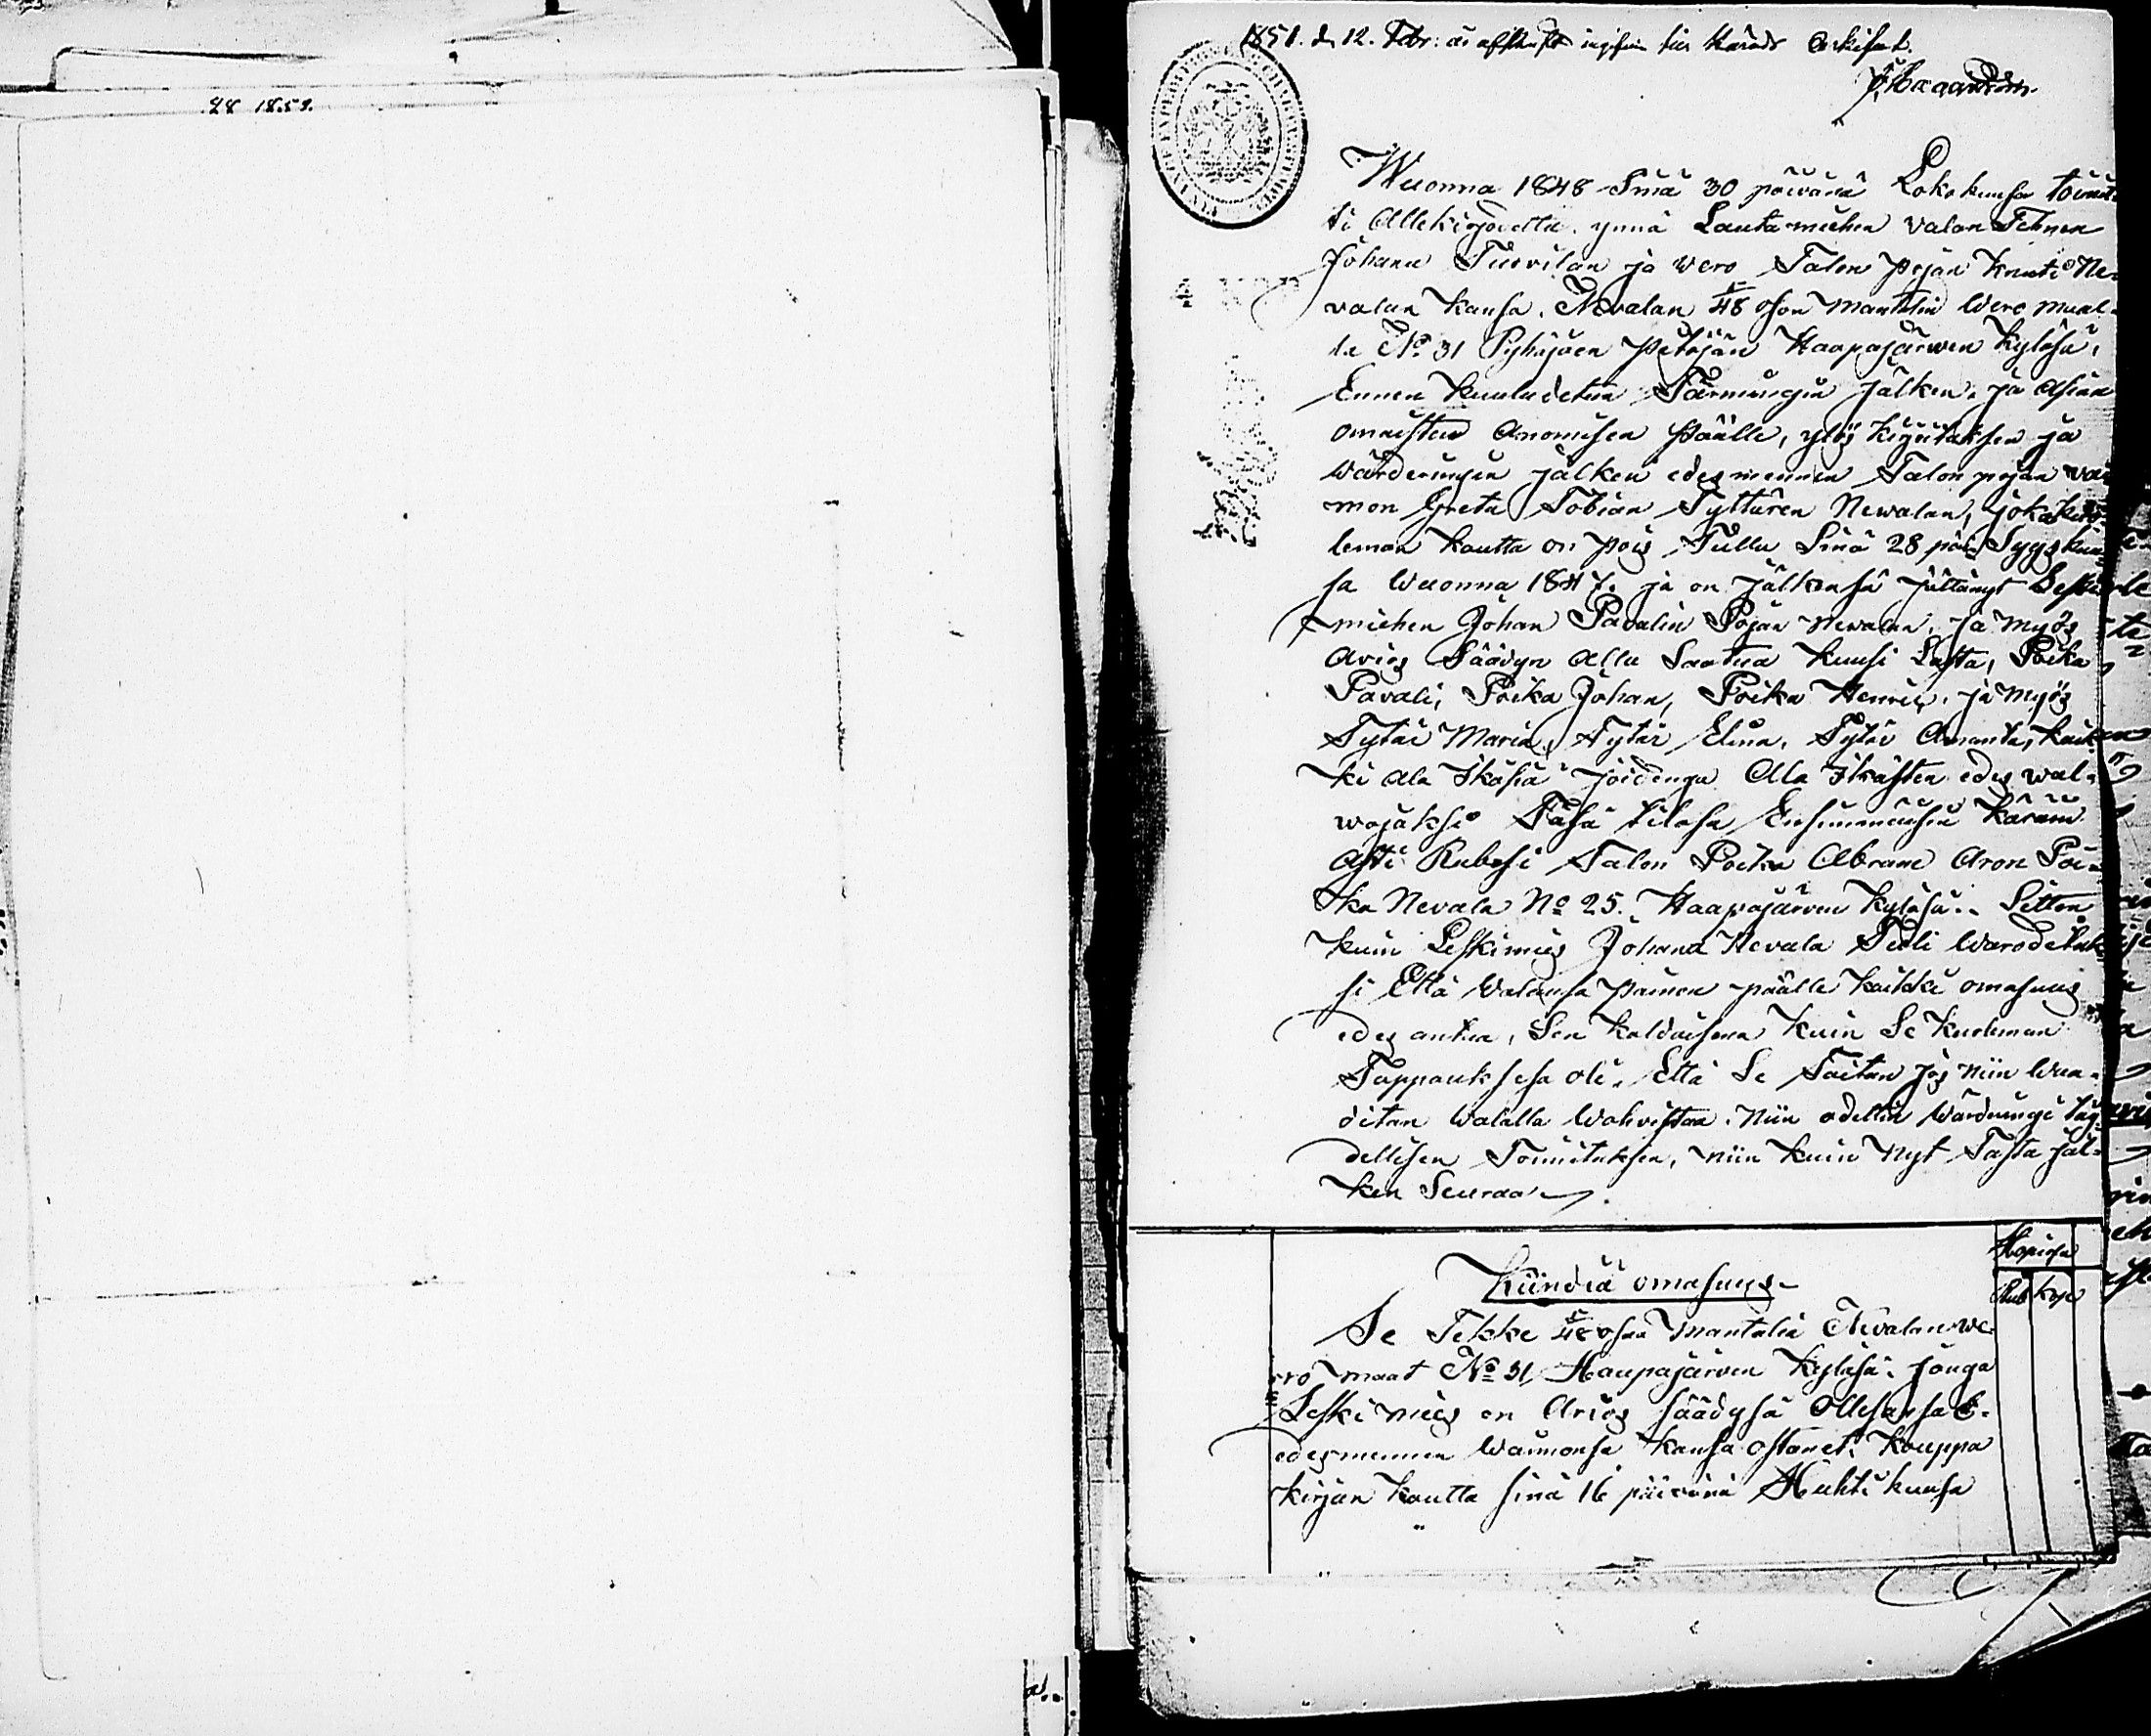 28 1851.
1851. d. 12. Febr: är afskrift ingifven till Härads Arkivet.
Wuonna 1848 Sinä 30 päivänä Lokakuusa toimit-
ti Allekirjoitettu ynnä Lautamiehen valan Tehnen
Johanu Tuorilan ja wero Talon pojan Knuti Ne-
valan kansa. Nevalan 5/48 osan mantalin Wero maal-
la No 31 Pyhäjoen pitäjän Haapajärwen kyläsä,
Ennen kuuludetun Tärmingin jälken, ja asian
omaisten Anomisen päälle, ylös kirjoituksen ja
wärderingin jälken edesmennen Talon pojan vai
mon Greta Tobian Tyttären Newalan, joka kuo-
leman kautta on pois Tullu Sinä 28 päi Syyskuu-
sa Wuonna 1847. ja on jälkensä jättänyt Leski
miehen Johan Pavalin Pojan Newalan. ja myös
Avios Säädyn Alla Saatua kuusi Lasta, Poika
Pavali, Poika Johan, Poika Henric, ja myös
Tytär Maria, Tytär Elina, Tytär Amanta, kaik-
ki ala ikäsiä joidenga Ala Ikästen edes wal-
wojaksi Täsä tilasa Ensimmäisen käräin
Asti Rubesi Talon Poika Abram Aron Poi-
ka Nevala No 25. Haapajärven kyläsä. Sitten
kuin Leskimies Johana Nevala Tuli Warodetuk
si Että Walansa painon päälle kaikki omasuus
edes antaa, Sen kaldaisena kuin Se kuoleman
Tappauksesa oli. Että Se Taitan jos niin Waa-
ditan Walalla Wahvistaa. Niin odettin Wärderingi täy-
dellisen Toimituksen, niin kuin Nyt Tästä jäl-
ken Seuraa.
Hopiasa
Kiindiä omasuus
Rub kop
Se Tekke 5/48 osaa mantalia Nivalan we-
ro maat No 31 Haapajärven kyläsä. jonga
Leskimies on Avios säädysä Ollesansa
edesmennen Waimonsa kansa ostanet. kauppa
kirjan kautta sinä 16 päivänä Huhti kuusa